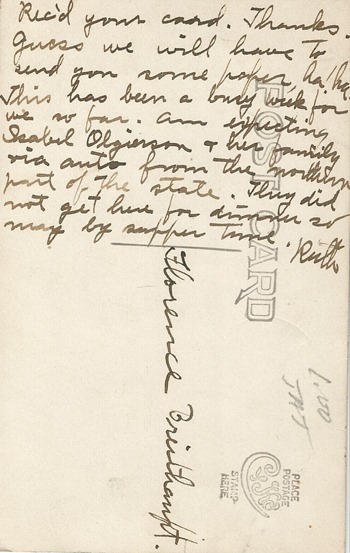 Rec'd your card. Thanks.
Guess we will have to
send you some paper ha! ha!
This has been a busy week for
we so far. Am expecting
Isabel Olgierson & her family
via auto from the northern
part of the state. They did
not get here for dinner so
may by supper time. Ruth
POST CARD
Florence
1.00
PLACE
POSTAGE
STAMP
HERE